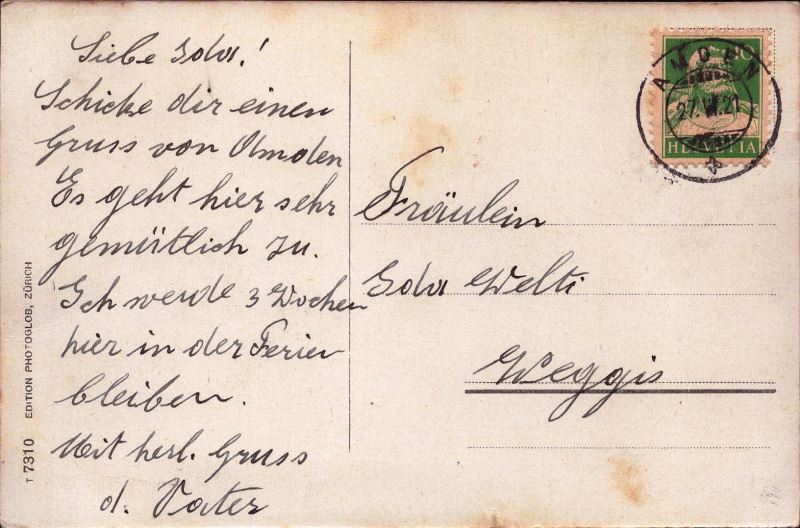 Liebe Ida!
Schicke dir einen
Gruss von Amden
Es geht hier sehr
gemütlich zu.
Ich werde 3 Wochen
hier in der Ferien
bleiben.
Mit herl. Gruss
d. Vater
Fräulein
Ida Welti
Weggis
AMDEN
27.VI.21
10
HELVETIA
T 7310 EDITION PHOTOGLOB, ZÜRICH